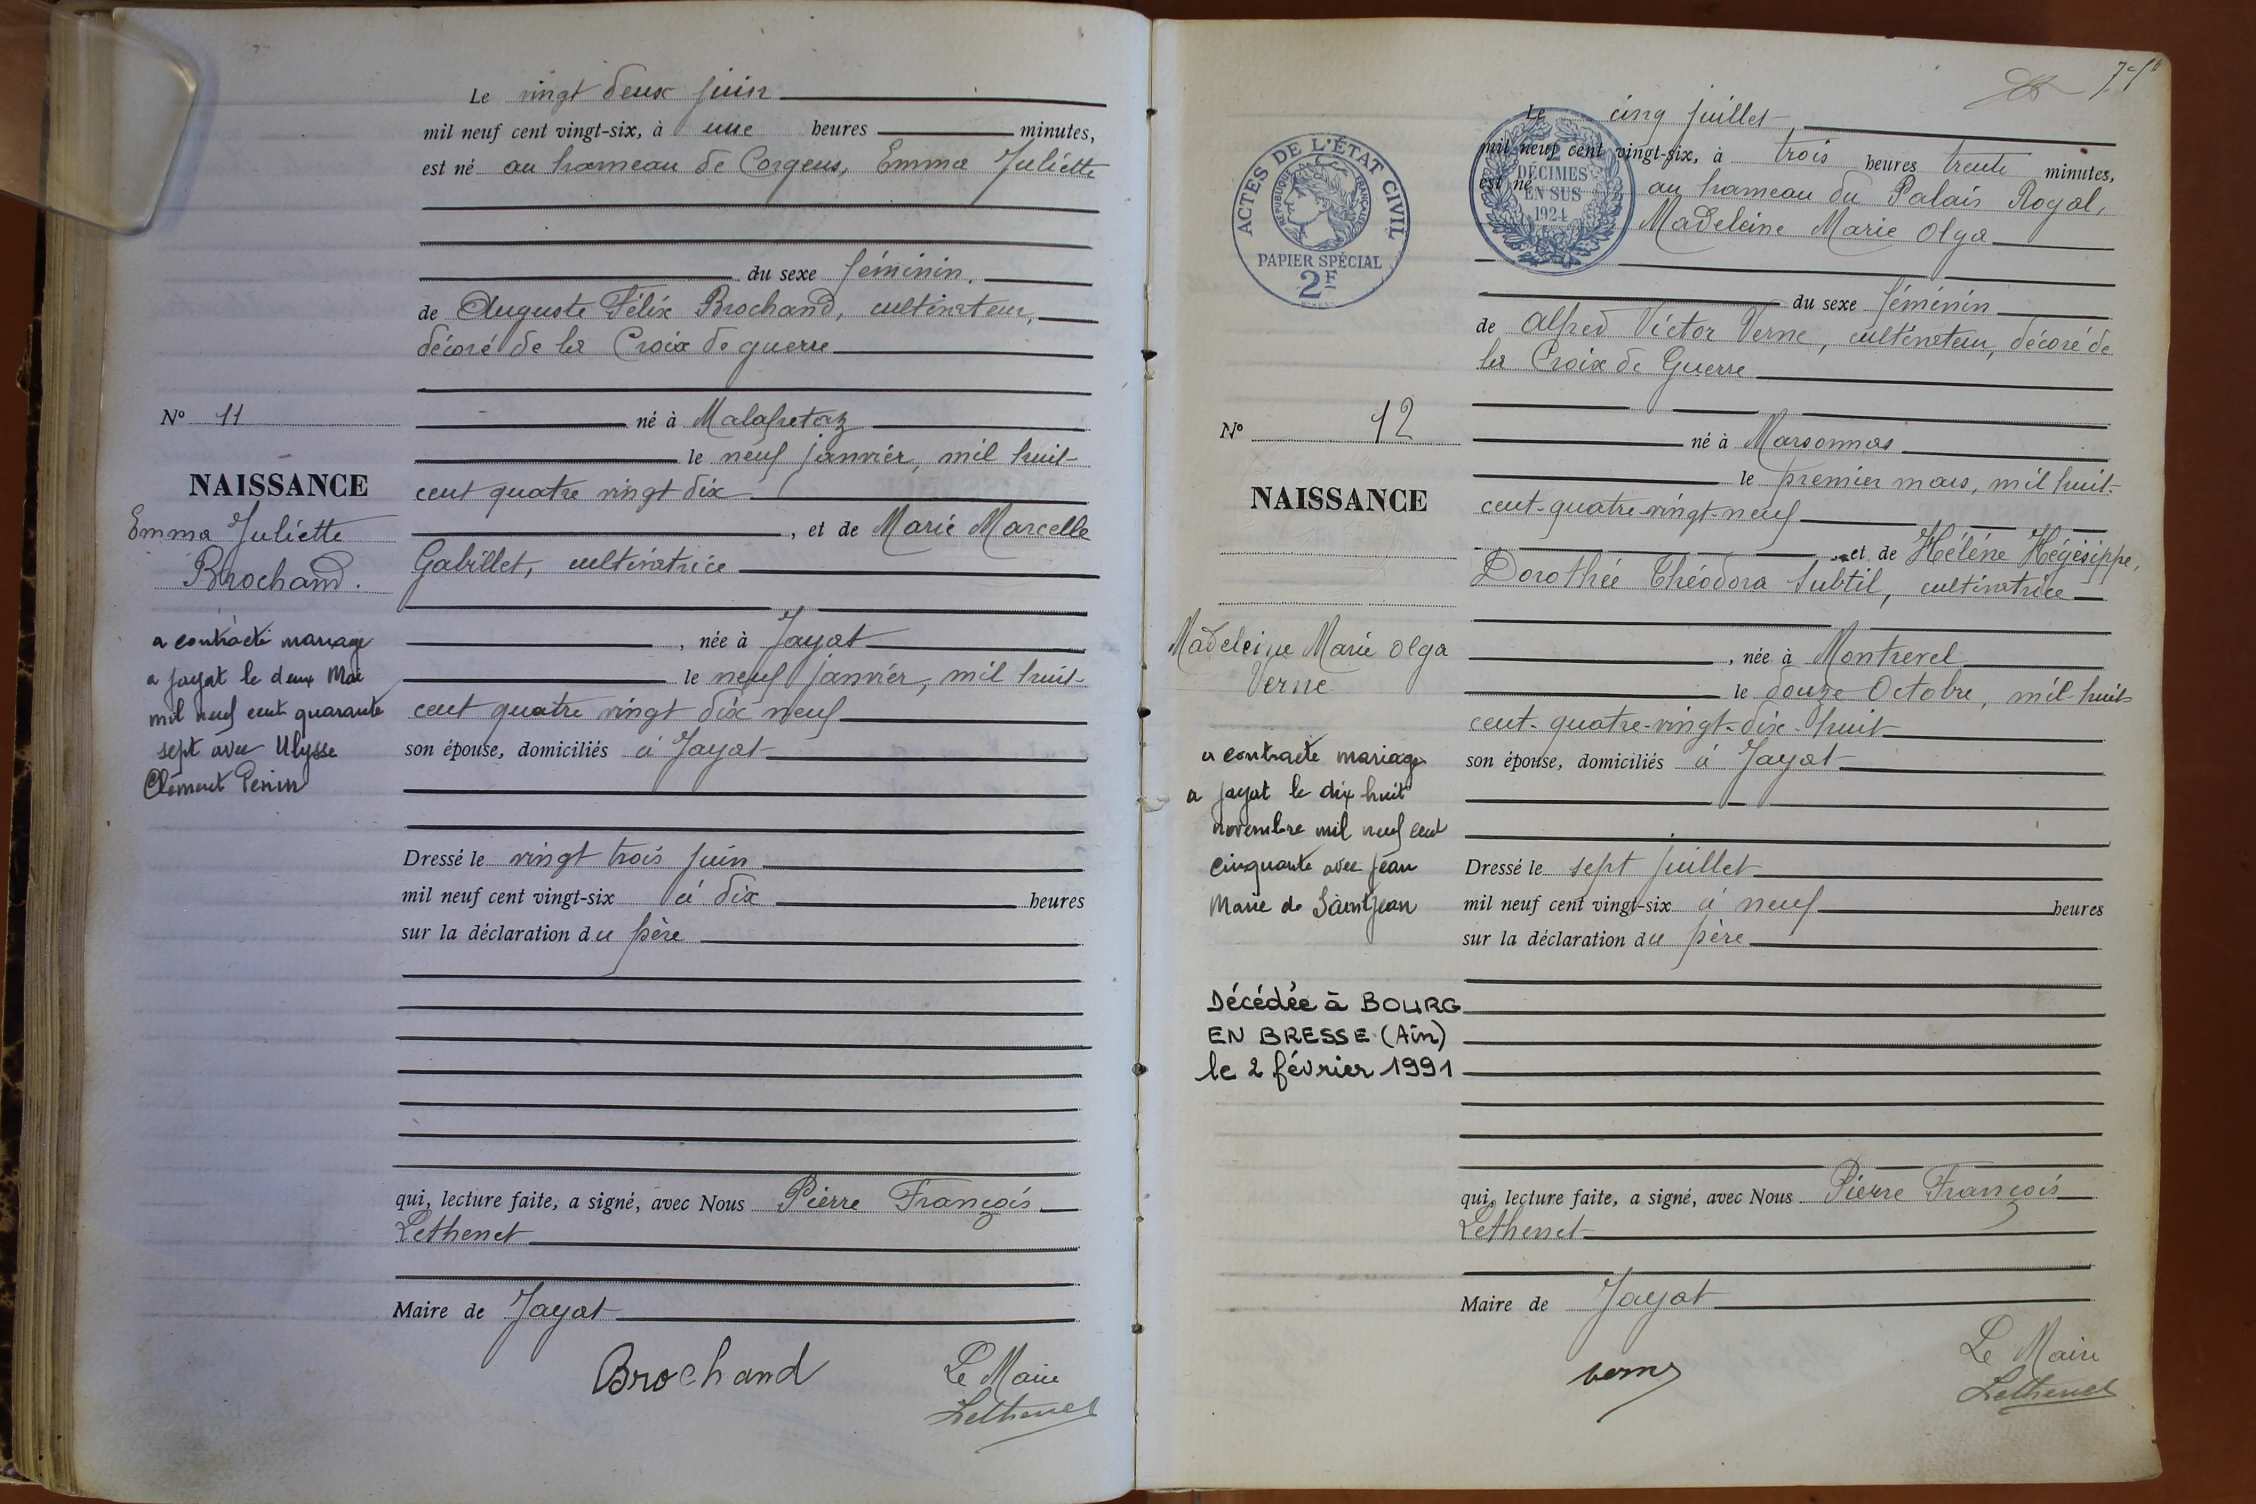 Le vingt deux juin
mil neuf cent vingt-six, à une heures minutes,
est né au hameau de Corgeus, Emma Juliette
du sexe féminin.
de Auguste Félix Brochand, cultivateur,
décoré de la Croix de guerre
né à Malafretaz
le neuf janvier, mil huit-
cent quatre vingt dix
, et de Marie Marcelle
Gabillet, cultivatrice
, née à Jayat
le neuf janvier, mil huit-
cent quatre vingt dix neuf
son épouse, domiciliés à Jayat
Dressé le vingt trois juin
mil neuf cent vingt-six à dix heures
sur la déclaration du père
qui, lecture faite, a signé, avec Nous Pierre François
Lethenet
Maire de Jayat
Brochand
Le Maire
Lethenet
N° 11
NAISSANCE
Emma Juliette
Brochand.
a contracté mariage
a Jayat le deux Mai
mil neuf cent quarante
sept avec Ulysse
Clément Penin
Le cinq juillet,
mil neuf cent vingt-six, à trois heures trente minutes,
est né au hameau du Palais Royal,
Madeleine Marie Olga
du sexe féminin
de Alfred Victor Verne, cultivateur, décoré de
la Croix de Guerre
né à Marsonnas
le premier mars, mil huit-
cent-quatre-vingt-neuf
et de Hélène Hégésippe,
Dorothée Théodora Subtil, cultivatrice
, née à Montrevel
le douze Octobre, mil huit-
cent-quatre-vingt-dix-huit
son épouse, domiciliés à Jayat
Dressé le sept juillet
mil neuf cent vingt-six à neuf heures
sur la déclaration du père
qui, lecture faite, a signé, avec Nous Pierre François
Lethenet
Maire de Jayat
Verne
Le Maire
Lethenet
ACTES DE L'ÉTAT CIVIL
RÉPUBLIQUE FRANÇAISE
PAPIER SPÉCIAL
2F
2
DÉCIMES
EN SUS
1924
N° 12
NAISSANCE
Madeleine Marie Olga
Verne
a contracté mariage
a Jayat le dix huit
novembre mil neuf cent
cinquante avec Jean
Marie de Saint Jean
Décédée à BOURG
EN BRESSE (Ain)
le 2 février 1991